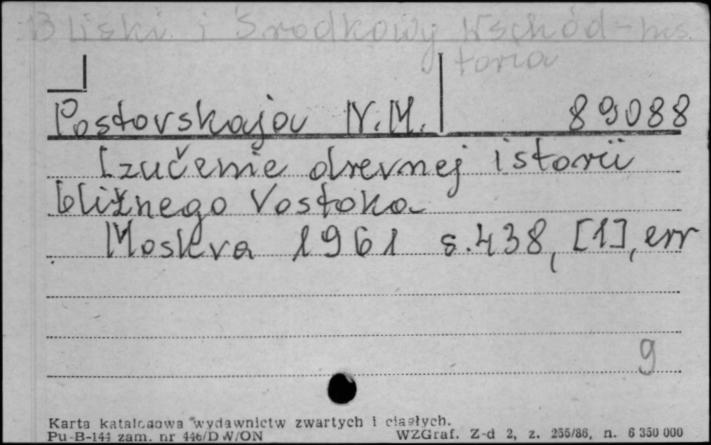 Bliski i Środkowy Wschód - his
toria
Postovskaja N.M. 89088
Izučenie drevnej istorii
bližnego Vostoka
Moskva 1961 s.438, [1], err
9
Karta katalogowa wydawnictw zwartych i ciągłych.
Pu-B-144 zam. nr 446/DW/ON WZGraf. Z-d 2, z. 255/86, n. 6 350 000